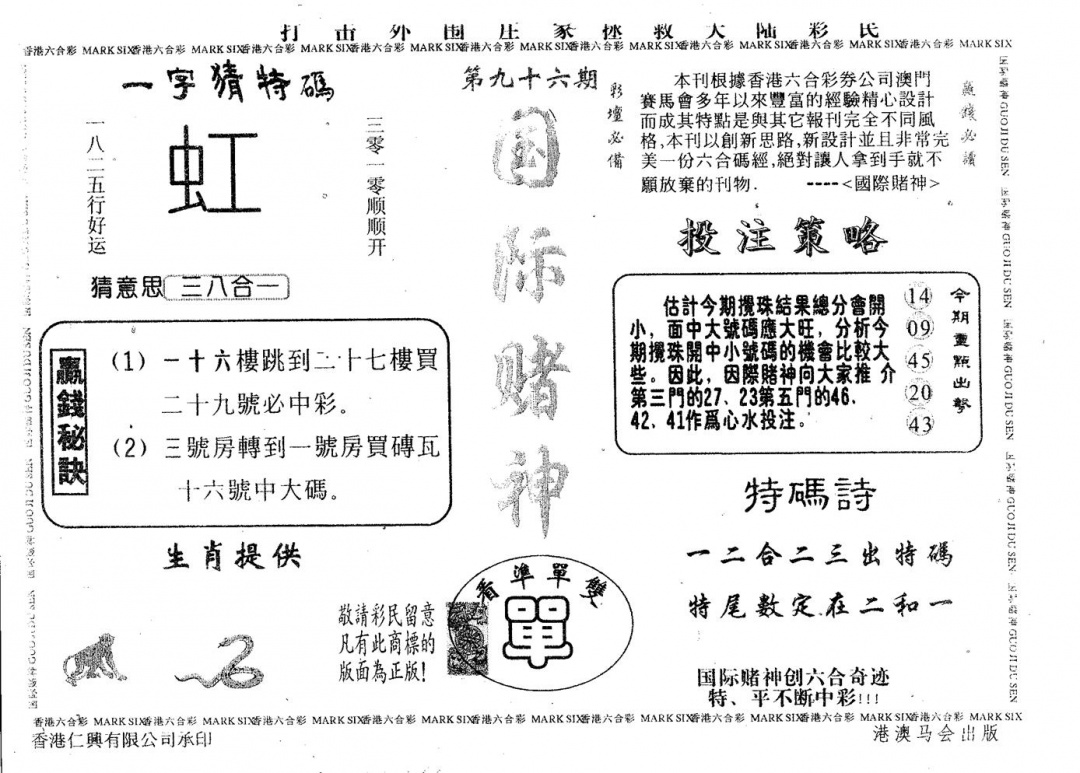 打击外围庄家拯救大陆彩民
香港六合彩 MARK SIX香港六合彩 MARK SIX香港六合彩 MARK SIX香港六合彩 MARK SIX香港六合彩 MARK SIX香港六合彩 MARK SIX香港六合彩 MARK SIX香港六合彩 MARK SIX香港六合彩 MARK SIX
一字猜特碼
一八二五行好运
虹
三零一零顺顺开
猜意思 三八合一
贏錢秘訣
(1) 一十六樓跳到二十七樓買
二十九號必中彩。
(2) 三號房轉到一號房買磚瓦
十六號中大碼。
生肖提供
敬請彩民留意
凡有此商標的
版面為正版!
第九十六期
国际赌神
看準單雙
單
彩壇必備
本刊根據香港六合彩券公司澳門
賽馬會多年以來豐富的經驗精心設計
而成其特點是與其它報刊完全不同風
格,本刊以創新思路,新設計並且非常完
美一份六合碼經,絕對讓人拿到手就不
願放棄的刊物. ----<國際賭神>
贏錢必讀
投注策略
估計今期攪珠結果總分會開
小，面中大號碼應大旺，分析今
期攪珠開中小號碼的機會比較大
些。因此，因際賭神向大家推介
第三門的27、23第五門的46、
42、41作爲心水投注。
14
09
45
20
43
今期重點出擊
特碼詩
一二合二三出特碼
特尾數定在二和一
国际赌神创六合奇迹
特、平不断中彩!!!
国际赌神 GUO JI DU SEN 国际赌神 GUO JI DU SEN 国际赌神 GUO JI DU SEN 国际赌神 GUO JI DU SEN 国际赌神 GUO JI DU SEN
香港六合彩 MARK SIX香港六合彩 MARK SIX香港六合彩 MARK SIX香港六合彩 MARK SIX香港六合彩 MARK SIX香港六合彩 MARK SIX香港六合彩 MARK SIX香港六合彩 MARK SIX香港六合彩 MARK SIX
香港仁興有限公司承印
港澳马会出版